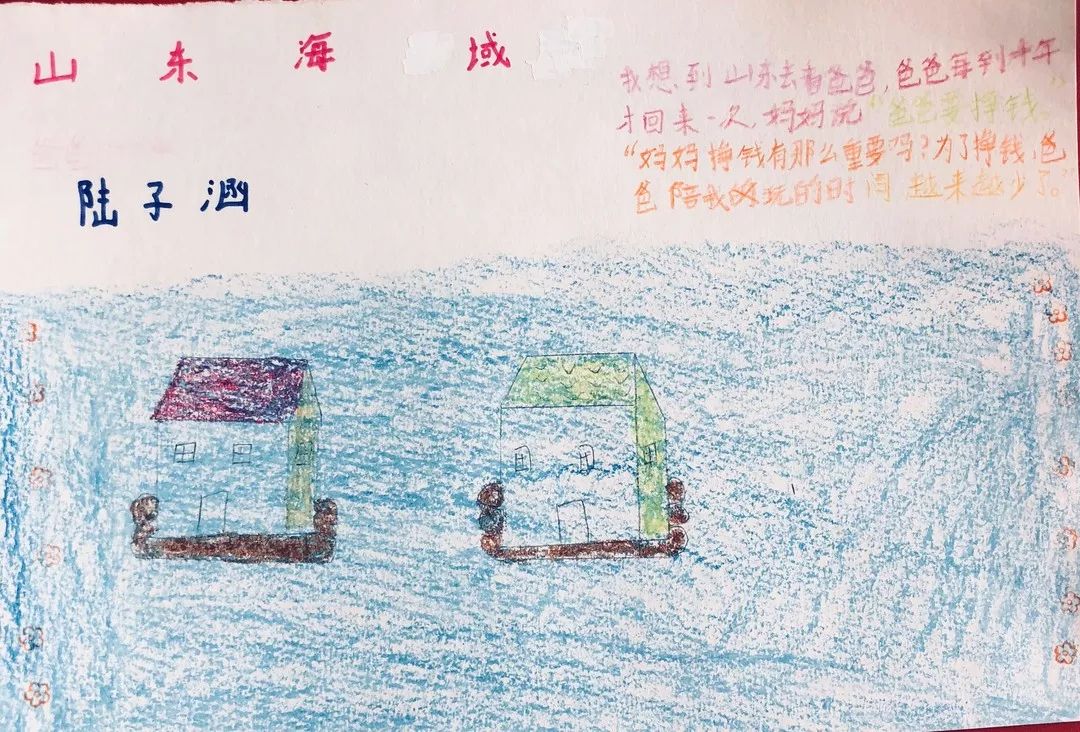 山东海域
陆子涵
我想到山东去看爸爸,爸爸每到半年
才回来一次,妈妈说“爸爸要挣钱”
“妈妈挣钱有那么重要吗?为了挣钱,爸
爸陪我的玩的时间越来越少了。”